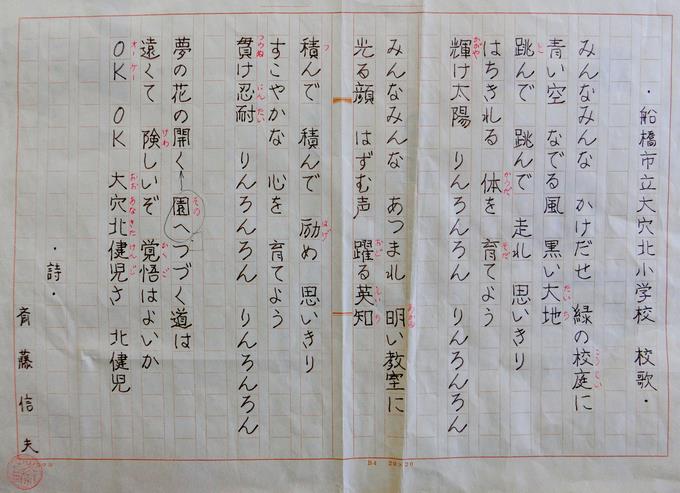 ・船橋市立大穴北小学校 校歌・
みんなみんな かけだせ 緑の校庭に
青い空 なでる風 黒い大地
跳んで 跳んで 走れ 思いきり
はちきれる 体を 育てよう
輝け太陽 りんろんろん りんろんろん
みんなみんな あつまれ 明い教室に
光る顔 はずむ声 躍る英知
積んで 積んで 励め 思いきり
すこやかな 心を 育てよう
貫け忍耐 りんろんろん りんろんろん
夢の花の開く 園へつづく道は
遠くて 険しいぞ 覚悟はよいか
OK OK 大穴北健児さ 北健児
・詩・
斉藤信夫
B4 20×20